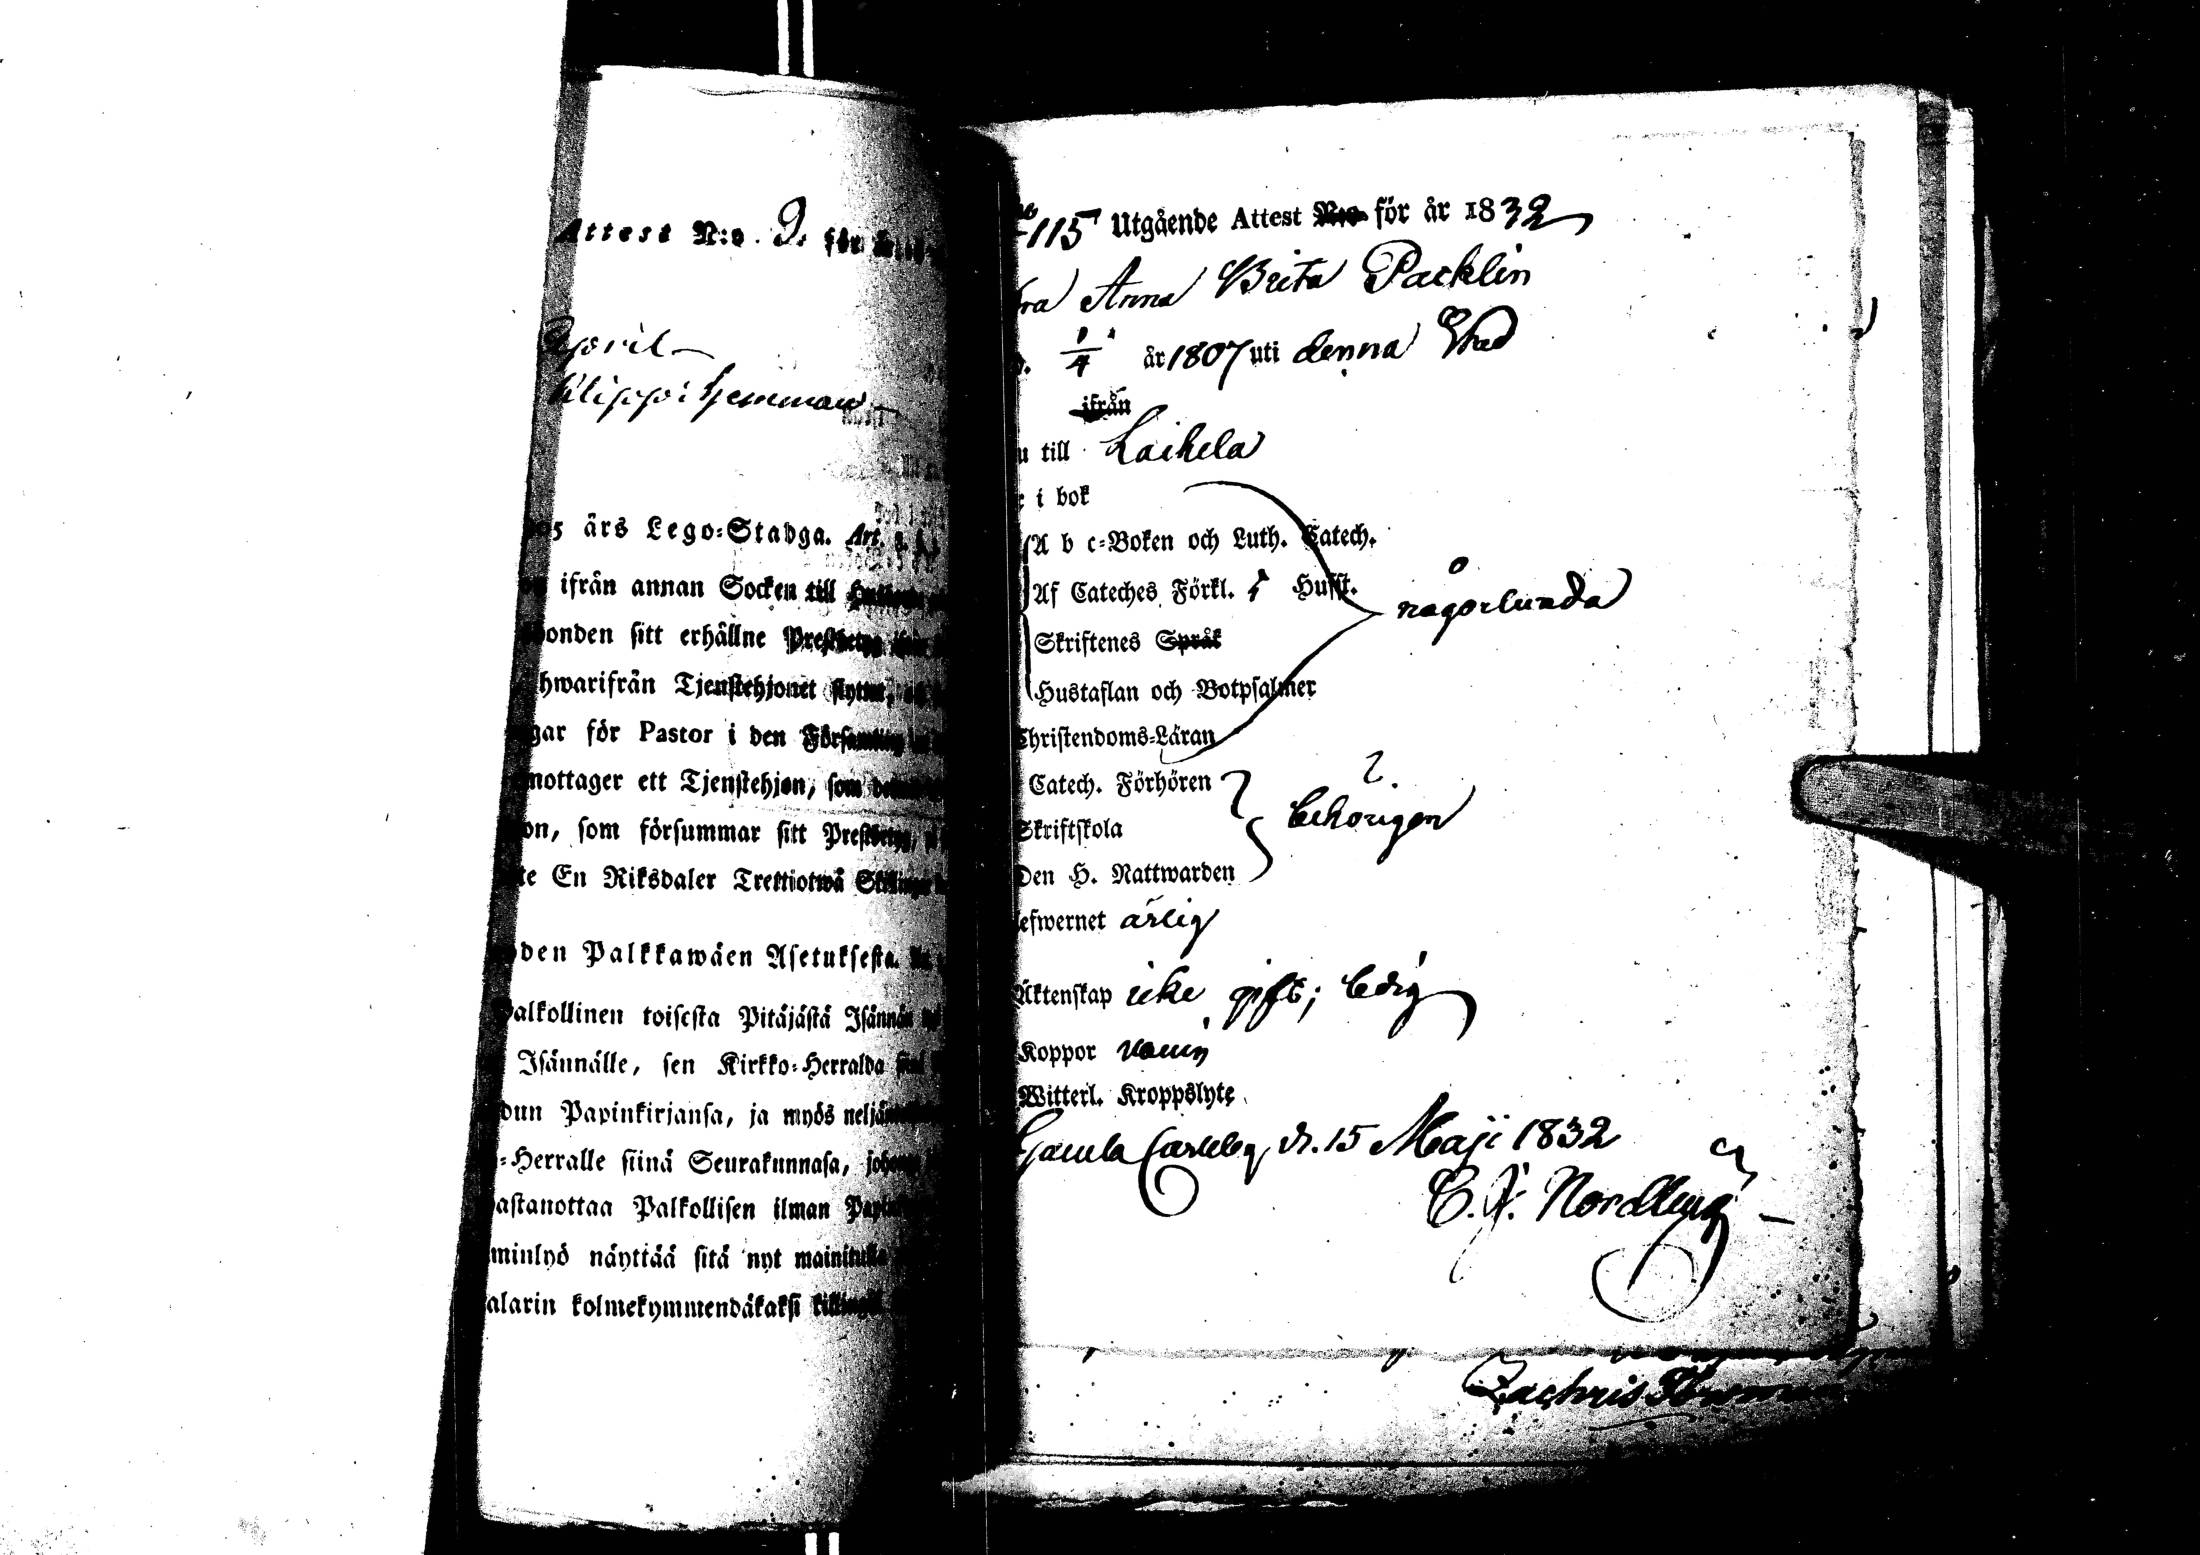 Attest N:o 9. för
April
Klippi hemman
års Lego-Stadga. Art.
ifrån annan Socken till
onden sitt erhållne Prestbetyg
hwarifrån Tjenstehjonet flyttat,
gar för Pastor i den Församling
mottager ett Tjenstehjon, som
on, som försummar sitt Prestbetyg,
te En Riksdaler Trettiotwå Skillingar
den Palkkawäen Asetuksesta.
alkollinen toisesta Pitäjästä Isännän
Isännälle, sen Kirkko-Herralda
dun Papinkirjansa, ja myös
-Herralle siinä Seurakunnasa,
astanottaa Palkollisen ilman
minlyö näyttää sitä nyt
alarin kolmekymmendäkaksi killingiä
115 Utgående Attest N:o för år 1832
Anna Brita Packlin
1/4 år 1807 uti denna Stad
ifrån
till Laihela
i bok
A b c-Boken och Luth. Catech.
Af Cateches Förkl. Husst.
någorlunda
Skriftenes Språk
Hustaflan och Botpsalmer
Christendoms-Läran
Catech. Förhören
behörigen
Skriftskola
Den H. Nattwarden
efwernet ärlig
Äktenskap icke gift; ledig
Koppor
Witterl. Kroppslyte
Gamla Carleby d. 15 Maji 1832
C. J. Nordlung
Zachris